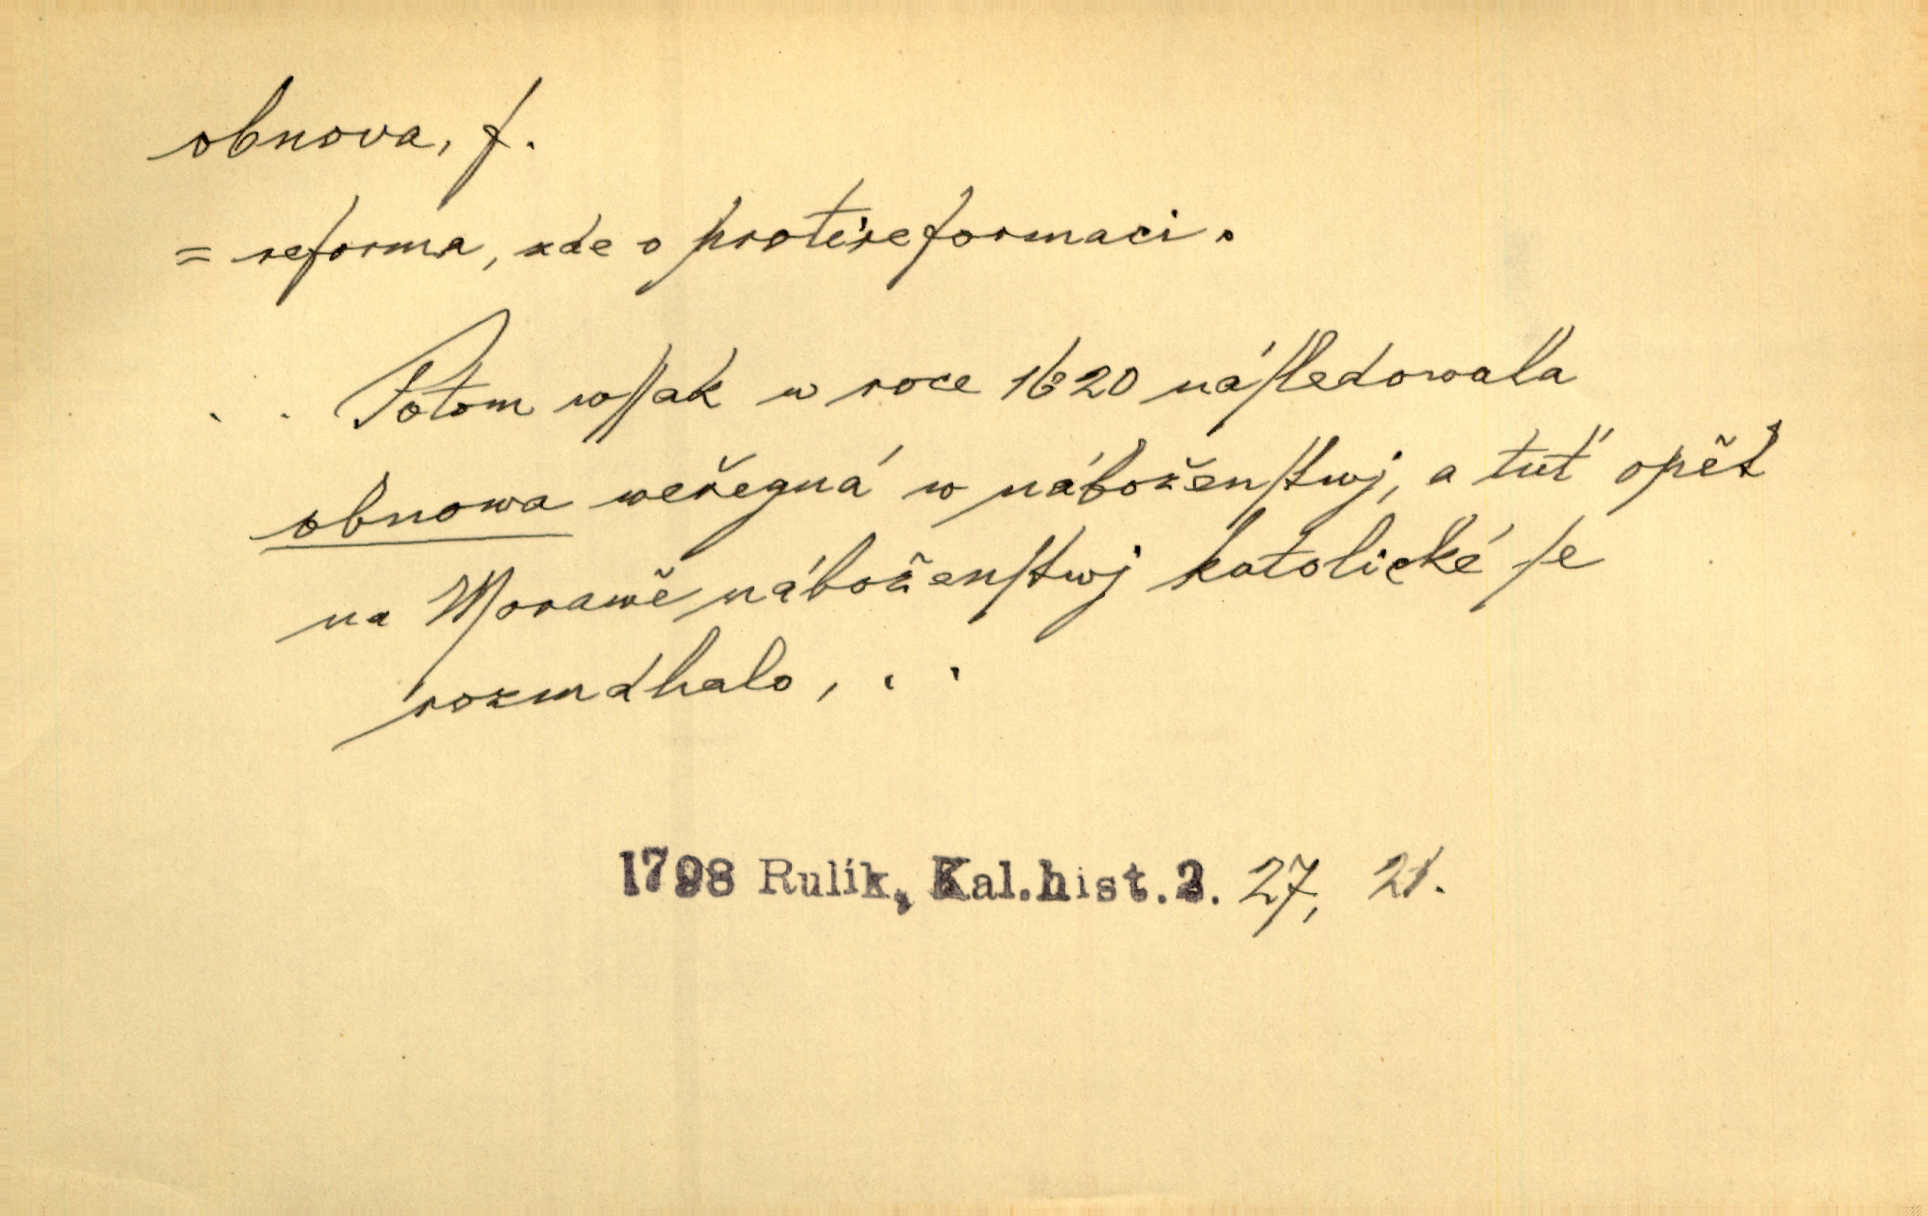 obnova, f.
= reforma, zde o protireformaci.
. . Potom wſſak w roce 1620 náſledowala
obnowa weřegná w náboženſtwj, a tuť opět
na Morawě náboženſtwj katolické ſe
rozmáhalo, . .
1798 Rulík, Kal.hist.2. 27, 21.